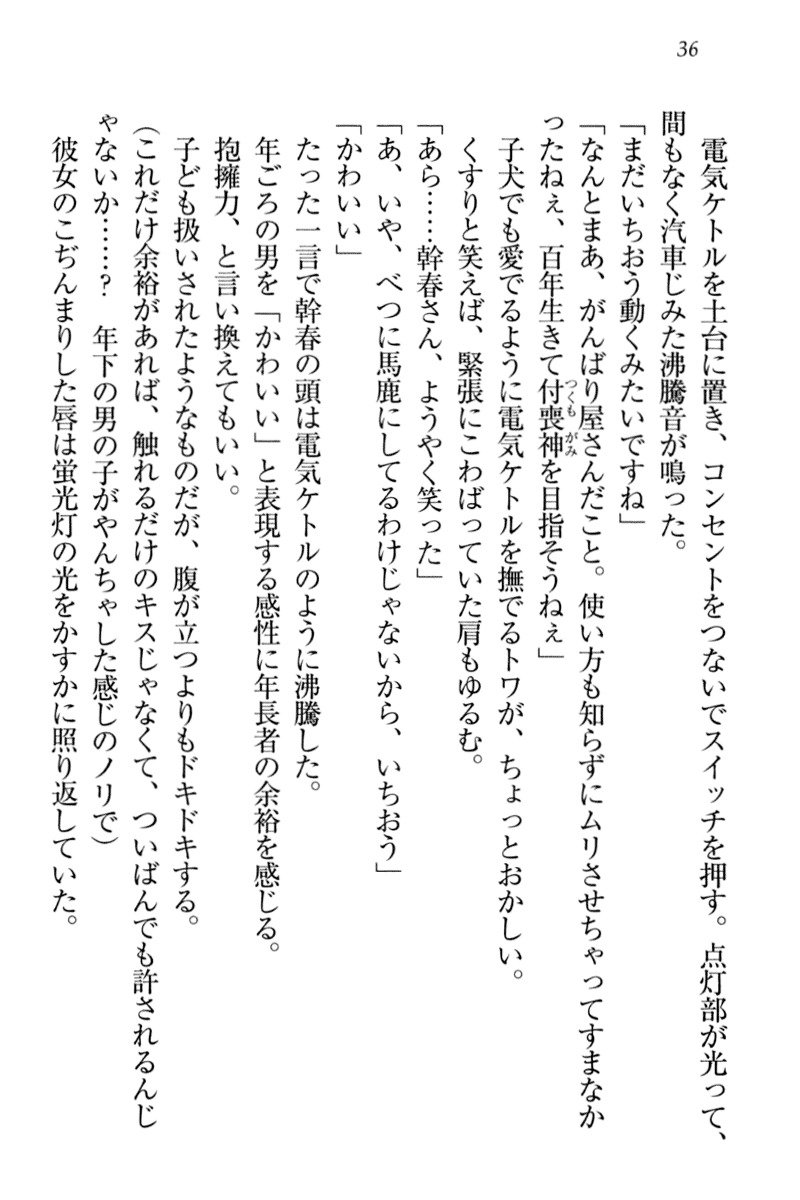 36
電気ケトルを土台に置き、コンセントをつないでスイッチを押す。点灯部が光って、
間もなく汽車じみた沸騰音が鳴った。
「まだいちおう動くみたいですね」
「なんとまあ、がんばり屋さんだこと。使い方も知らずにムリさせちゃってすまなか
ったねぇ、百年生きて付喪神を目指そうねぇ」
子犬でも愛でるように電気ケトルを撫でるトワが、ちょっとおかしい。
くすりと笑えば、緊張にこわばっていた肩もゆるむ。
「あら……幹春さん、ようやく笑った」
「あ、いや、べつに馬鹿にしてるわけじゃないから、いちおう」
「かわいい」
たった一言で幹春の頭は電気ケトルのように沸騰した。
年ごろの男を「かわいい」と表現する感性に年長者の余裕を感じる。
抱擁力、と言い換えてもいい。
子ども扱いされたようなものだが、腹が立つよりもドキドキする。
（これだけ余裕があれば、触れるだけのキスじゃなくて、ついばんでも許されるんじ
ゃないか……？　年下の男の子がやんちゃした感じのノリで）
彼女のこぢんまりした唇は蛍光灯の光をかすかに照り返していた。